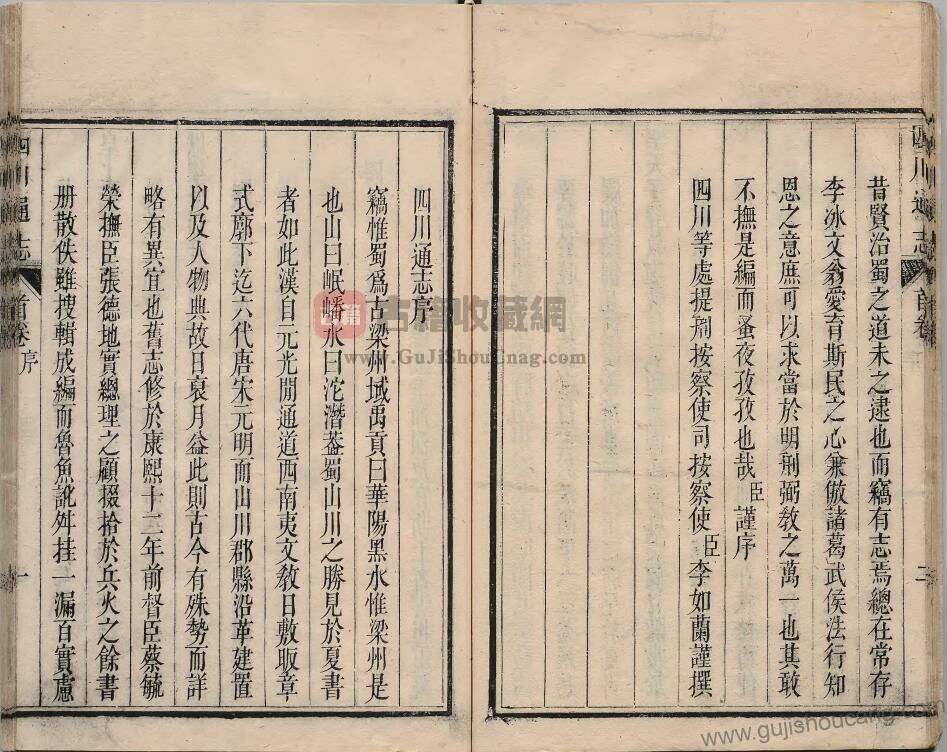 昔賢治蜀之道未之逮也而竊有志焉總在常存
李冰文翁愛育斯民之心兼倣諸葛武侯法行知
恩之意庶可以求當於明刑弼敎之萬一也其敢
不撫是編而蚤夜孜孜也哉臣謹序
四川等處提刑按察使司按察使臣李如蘭謹撰
四川通志
首卷
二
四川通志序
竊惟蜀爲古梁州域禹貢曰華陽黑水惟梁州是
也山曰岷嶓水曰沱潛葢蜀山川之勝見於夏書
者如此漢自元光開通道西南夷文敎日敷版章
式廓下迄六代唐宋元明而山川郡縣沿革建置
以及人物典故日裒月益此則古今有殊勢而詳
略有異宜也舊志修於康熙十二年前督臣蔡毓
榮撫臣張德地實總理之顧掇拾於兵火之餘書
册散佚雖搜輯成編而魯魚訛舛挂一漏百實慮
四川通志
首卷
序
一
古籍收藏網
www.GuJiShouCnag.com
www.gujishoucang.com